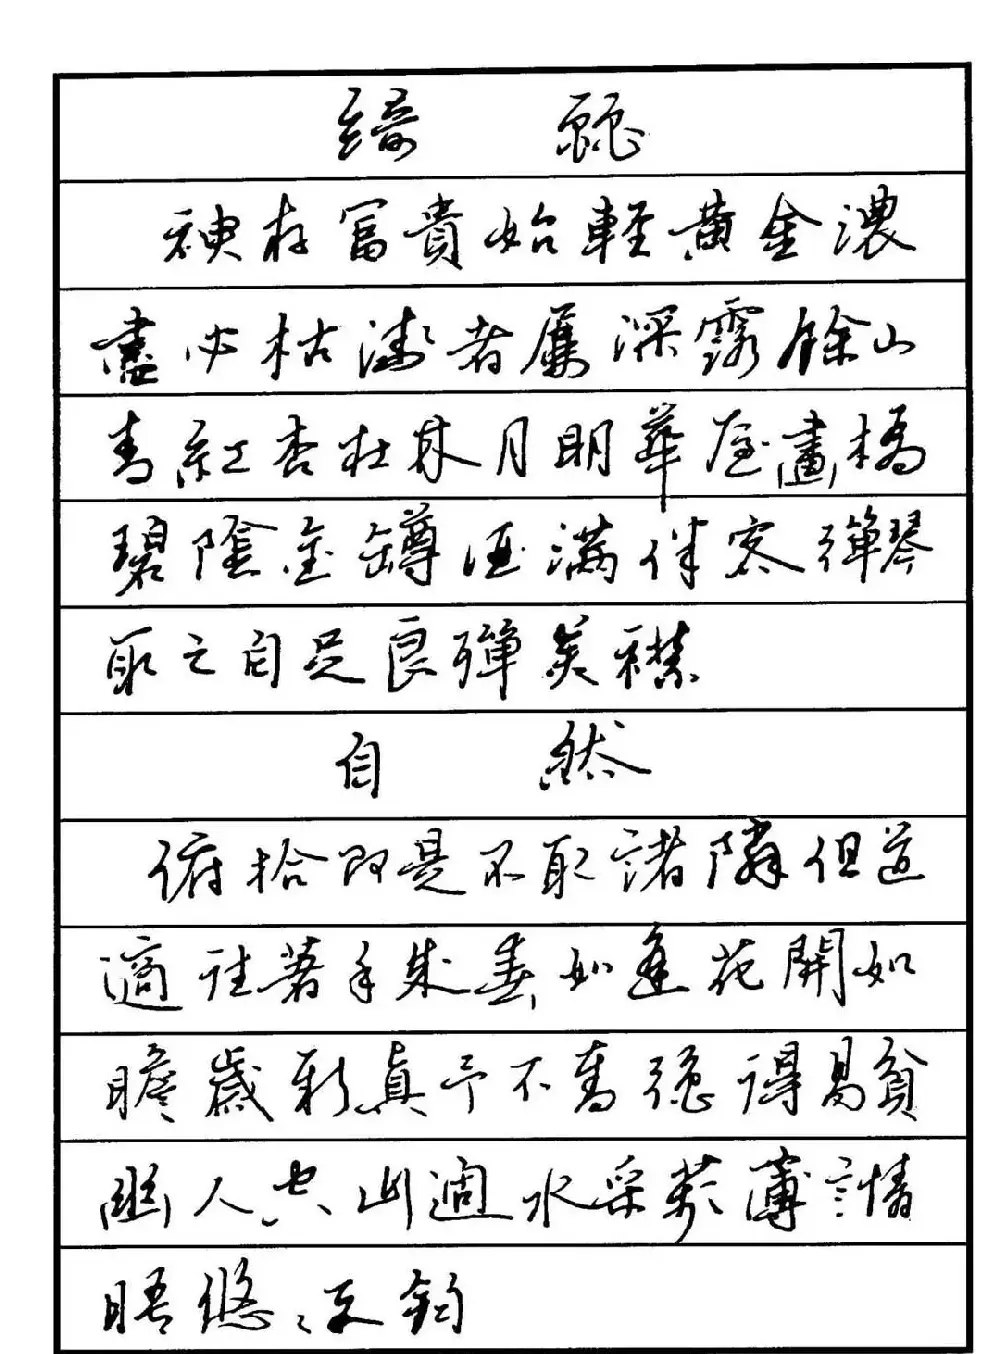 綺麗
神存富貴始輕黃金濃
盡必枯淺者屢深露餘山
青紅杏在林月明華屋畫橋
碧陰金罇酒滿伴客彈琴
取之自足良殫美襟
自然
俯拾即是不取諸隣但道
適往著手成春如逢花開如
瞻歲新真予不奪强得易貧
幽人空山過水采蘋薄言情
晤悠々天鈞